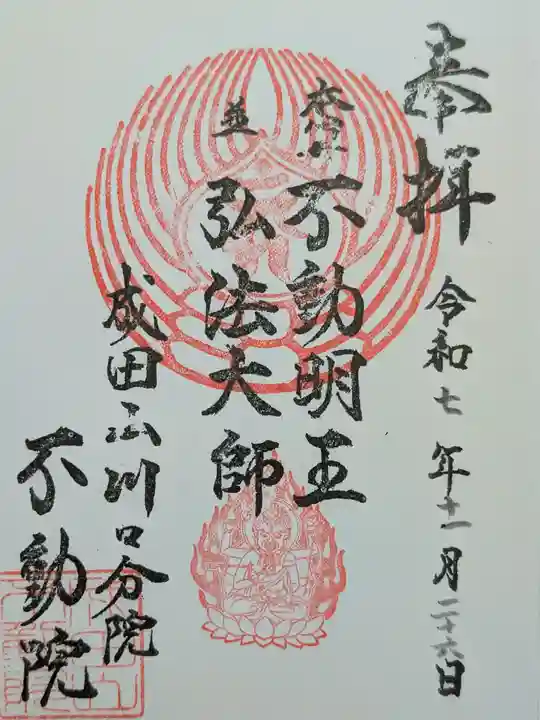 奉拝
令和七年十一月二十六日
本尊
不動明王
並
弘法大師
成田山川口分院
不動院